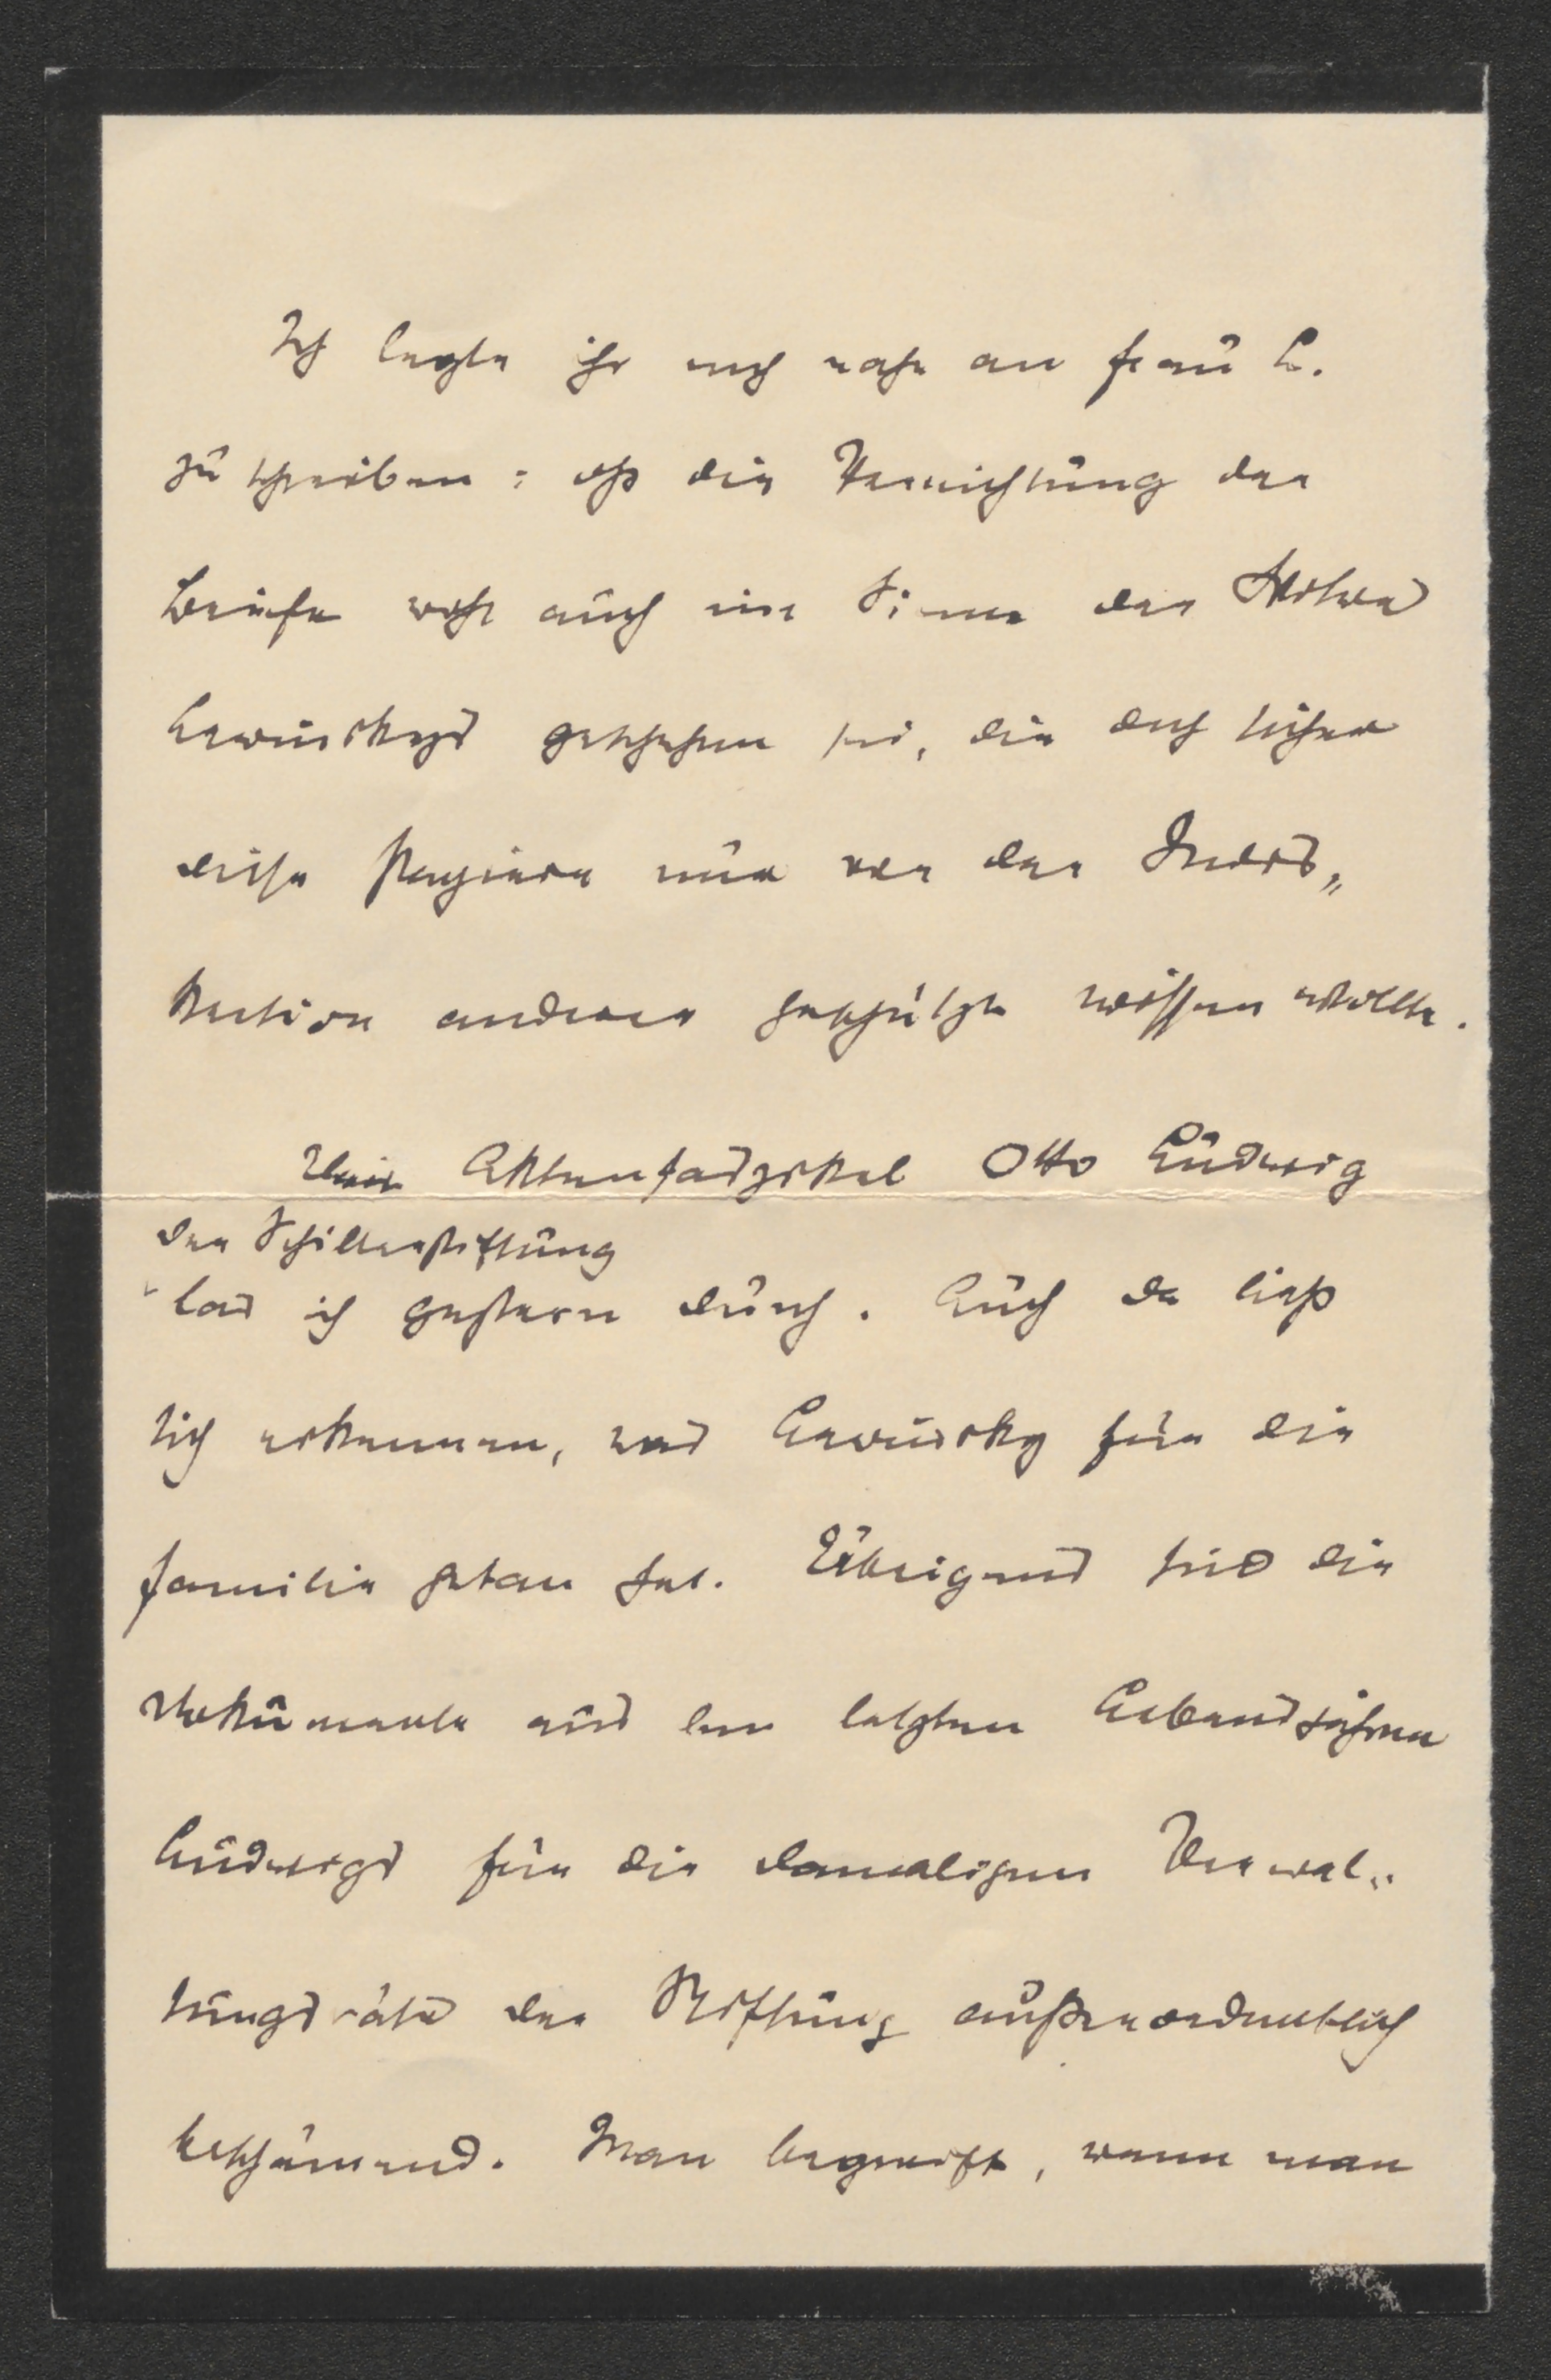 Ich legte ihr noch nahe an Frau L.
zu schreiben: daß die Vernichtung der
Briefe wohl auch im Sinne des Notars
Lewinskys geschehen sei, die doch sicher
diese Papiere nur vor der Indis„
kretion anderer geschützt wissen wollte.
Aktenfaszikel Otto Ludwig
der Schillerstiftung
las ich gestern durch. Auch da ließ
sich erkennen, was Lewinsky für die
Familie getan hat. Übrigens sind die
Dokumente aus den letzten Lebensjahren
Ludwigs für die damaligen Verwal„
tungsräte der Stiftung außerordentlich
beschämend. Man begreift, wenn man